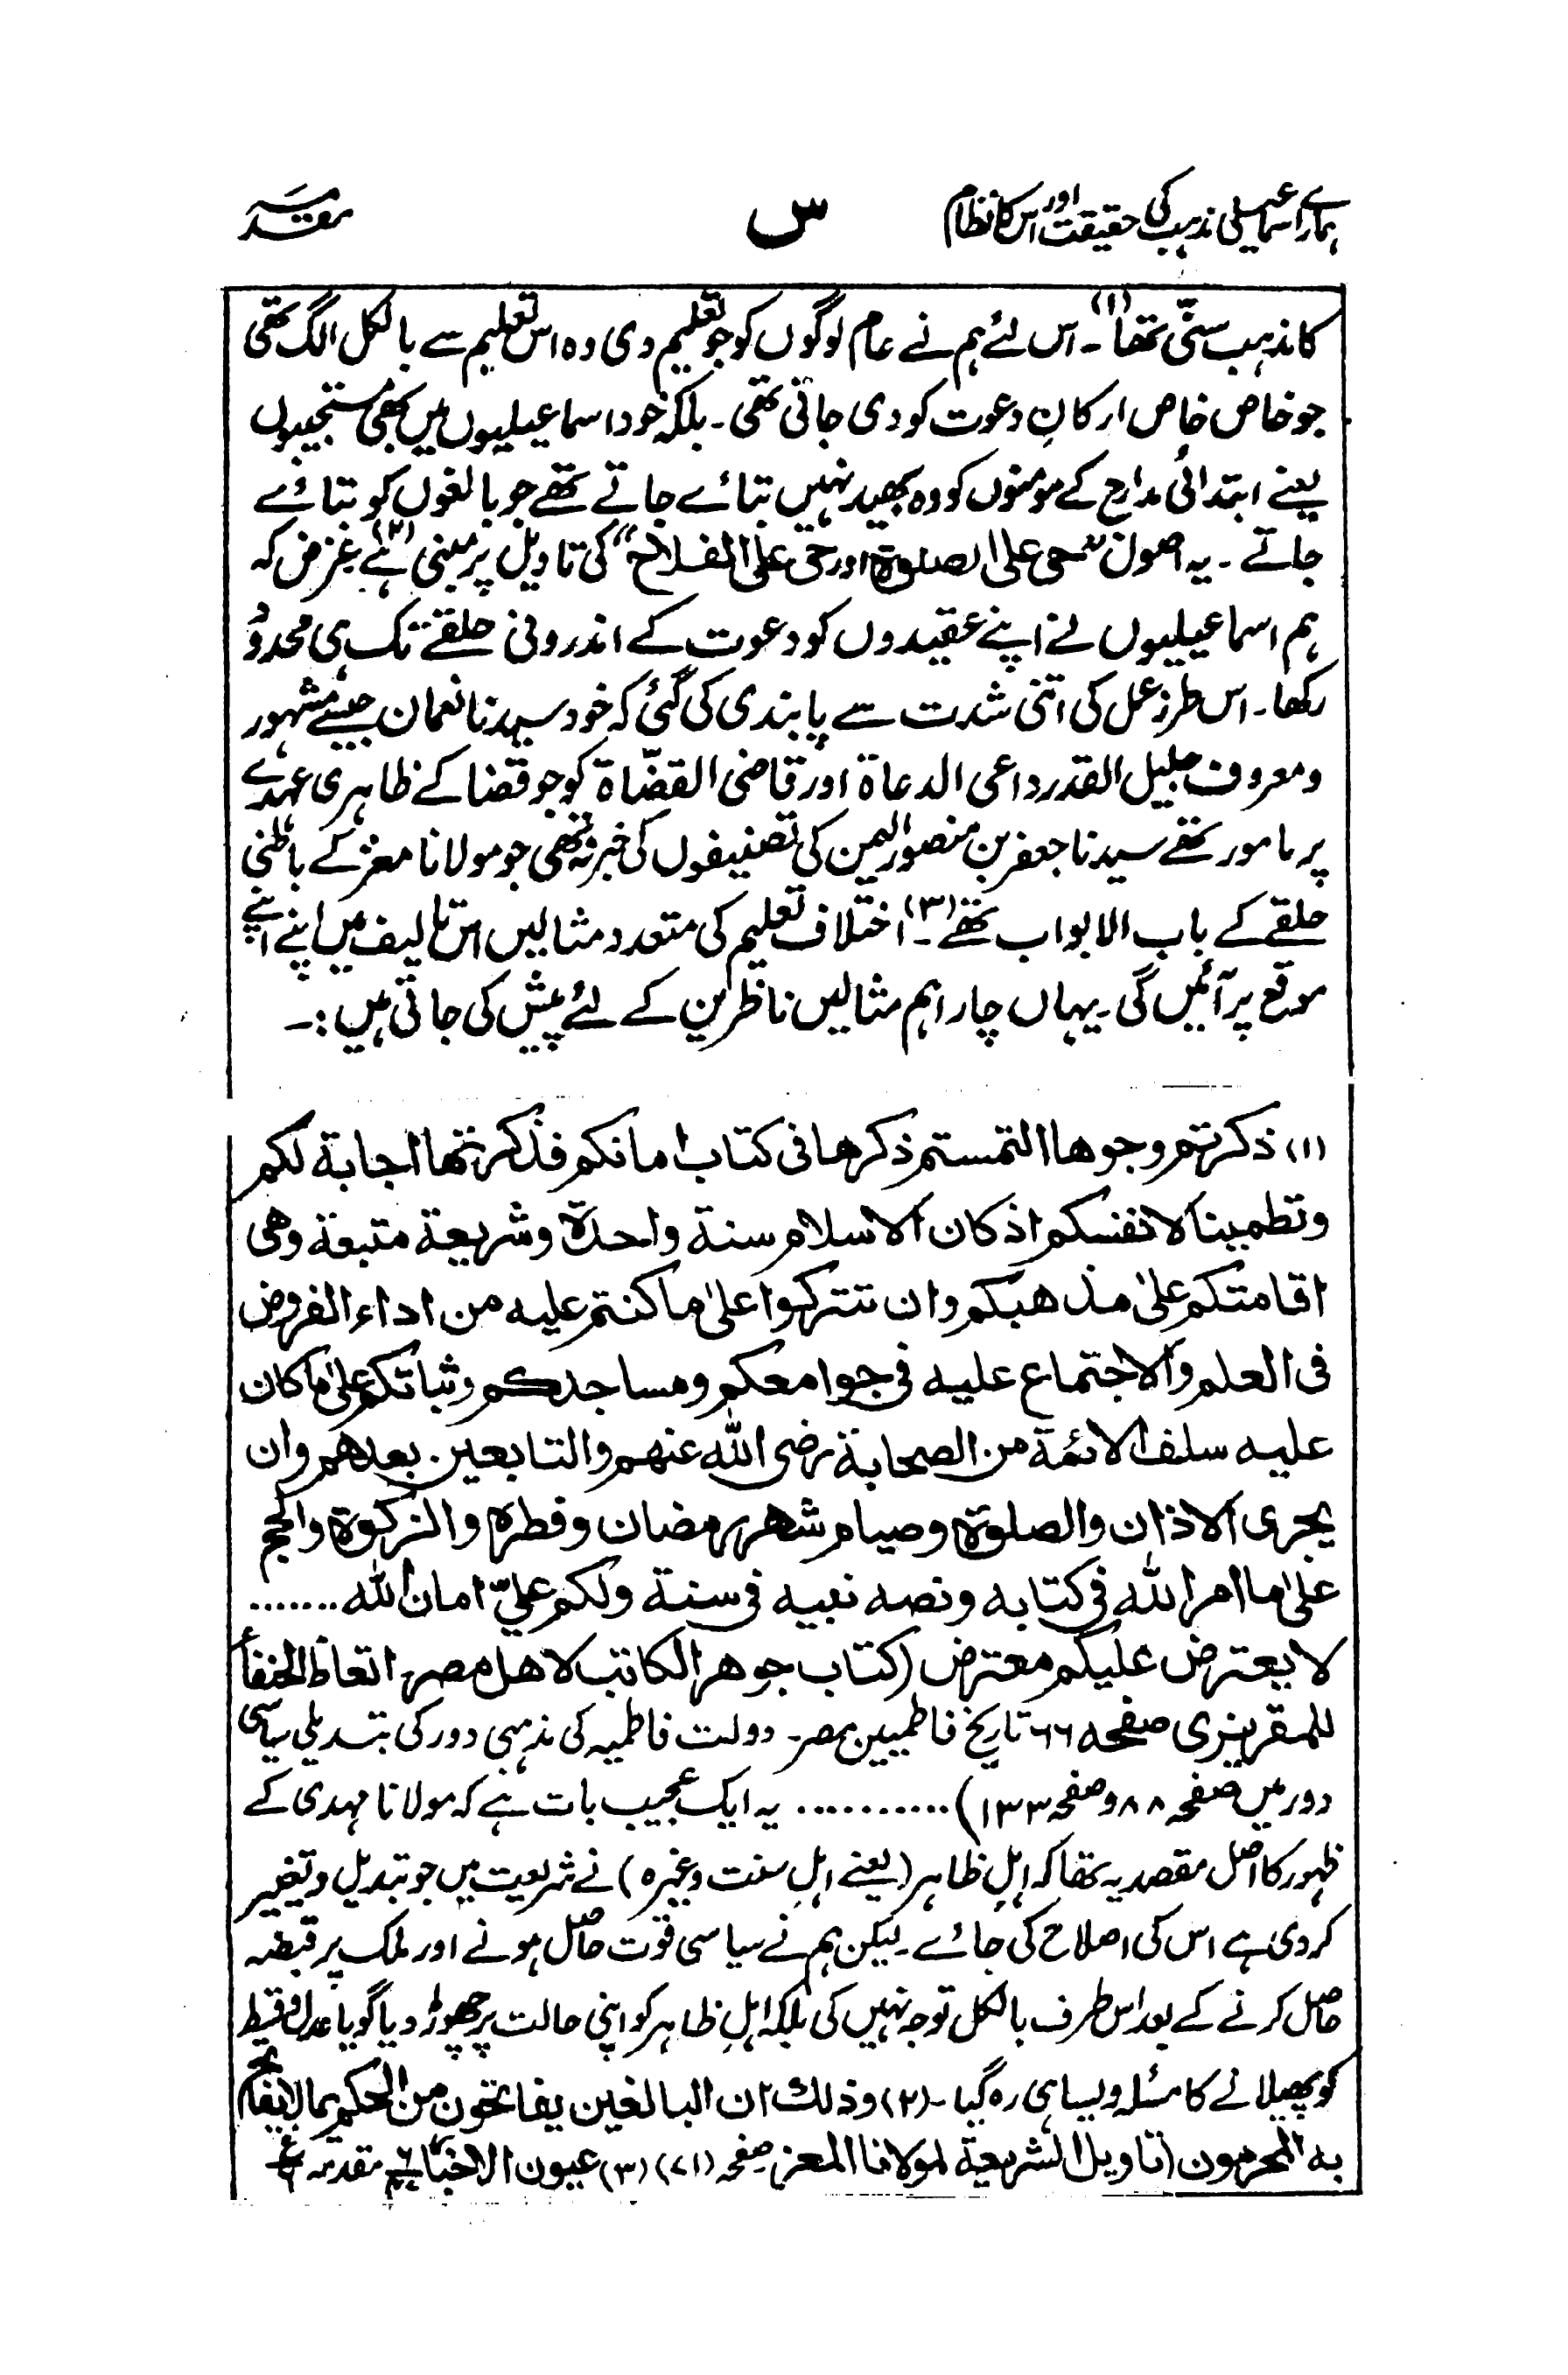 ہمارے اسماعیلی مذہب کی حقیقت اور اس کا نظام
س
مقدمہ
کا مذہب سنّی تھا (۱)۔ اس لئے ہم نے عام لوگوں کو جو تعلیم دی وہ اس تعلیم سے بالکل الگ تھی
جو خاص خاص ارکانِ دعوت کو دی جاتی تھی۔ بلکہ خود اسماعیلیوں میں بھی مستجیبوں
یعنے ابتدائی مدارج کے مومنوں کو وہ بھید نہیں بتائے جاتے تھے جو بالغوں کو بتائے
جاتے ۔ یہ اصول ”حی علی الصلوۃ اور حی علی الفلاح“ کی تاویل پر مبنی (۲) ہے غرض کہ
ہم اسماعیلیوں نے اپنے عقیدوں کو دعوت کے اندرونی حلقے تک ہی محدود
رکھا۔ اس طرز عمل کی اتنی شدت سے پابندی کی گئی کہ خود سیدنا نعمان جیسے مشہور
و معروف جلیل القدر داعی الدعاۃ اور قاضی القضاۃ کو جو قضا کے ظاہری عہدے
پر مامور تھے سیدنا جعفر بن منصور الیمن کی تصنیفوں کی خبر نہ تھی جو مولانا معز کے باطنی
حلقے کے باب الابواب تھے (۳)۔ اختلاف تعلیم کی متعدد مثالیں اس تالیف میں اپنے اپنے
موقع پر آئیں گی۔ یہاں چار اہم مثالیں ناظرین کے لئے پیش کی جاتی ہیں :۔
(۱) ذکرتم وجوها التمستم ذکرها فی کتاب امانکم فذکرتها اجابة لکم
وتطمینا لانفسکم اذ کان الاسلام سنة واحدة وشریعة متبعة وهی
اقامتکم علیٰ مذهبکم وان تترکوا علیٰ ما کنتم علیه من اداء الفروض
فی العلم والاجتماع علیه فی جوامعکم ومساجدکم وثباتکم علیٰ ما کان
علیه سلف الائمة من الصحابة رضی الله عنهم والتابعین بعدهم وان
یجری الاذان والصلوة وصیام شهر رمضان وفطره والزکوة والحج
علیٰ ما امر الله فی کتابه ونصه نبیه فی سنة ولکم علیّ امان الله .......
لا یعترض علیکم معترض (کتاب جوهر الکاتب لاهل مصر اتعاظ الحنفأ
للمقریزی صفحہ ۶۶ تاریخ فاطمیین مصر۔ دولت فاطمیہ کی مذہبی دور کی تبدیلی سیاسی
دور میں صفحہ ۸۸ و صفحہ ۱۳۳) ........... یہ ایک عجیب بات ہے کہ مولانا مہدی کے
ظہور کا اصل مقصد یہ تھا کہ اہلِ ظاہر (یعنے اہلِ سنت وغیرہ) نے شریعت میں جو تبدیل و تغییر
کردی ہے اس کی اصلاح کی جائے۔ لیکن ہم نے سیاسی قوت حاصل ہونے اور ملک پر قبضہ
حاصل کرنے کے بعد اس طرف بالکل توجہ نہیں کی بلکہ اہلِ ظاہر کو اپنی حالت پر چھوڑ دیا گویا عدل و قسط
کو پھیلانے کا مسئلہ ویسا ہی رہ گیا۔ (۲) وذلك ان البالغین یفاتحون من الحکم بما لا یفاتح
به المحرمون (تاویل الشریعة لمولانا المعز صفحہ (۷۱) (۳) عیون الاخبار مقدمہ